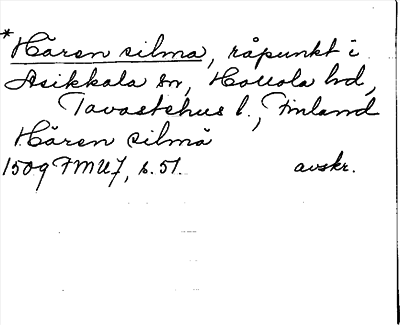 * Hären silma, råpunkt i
Asikkala sn, Hollola hd,
Tavastehus l., Finland
Hären silmä
1509 FMU7, s. 51. avskr.